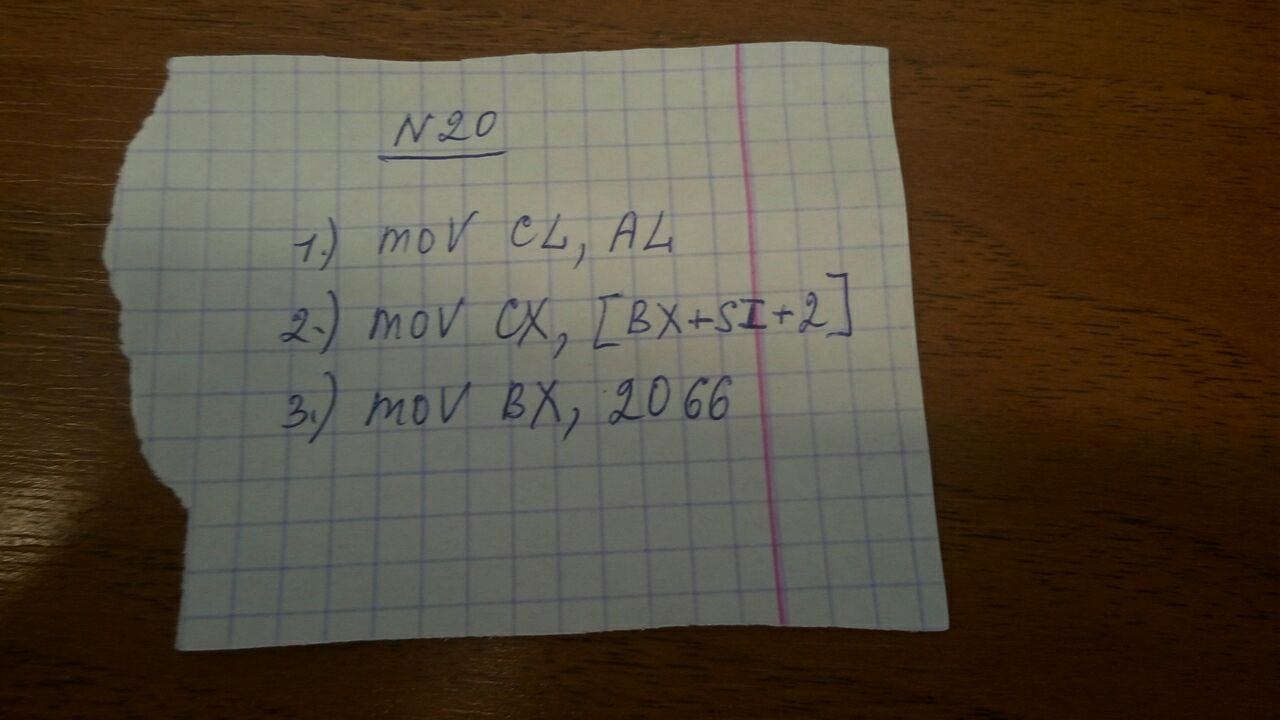 N20
1.) mov CL, AL
2.) mov CX, [BX+SI+2]
3.) mov BX, 2066